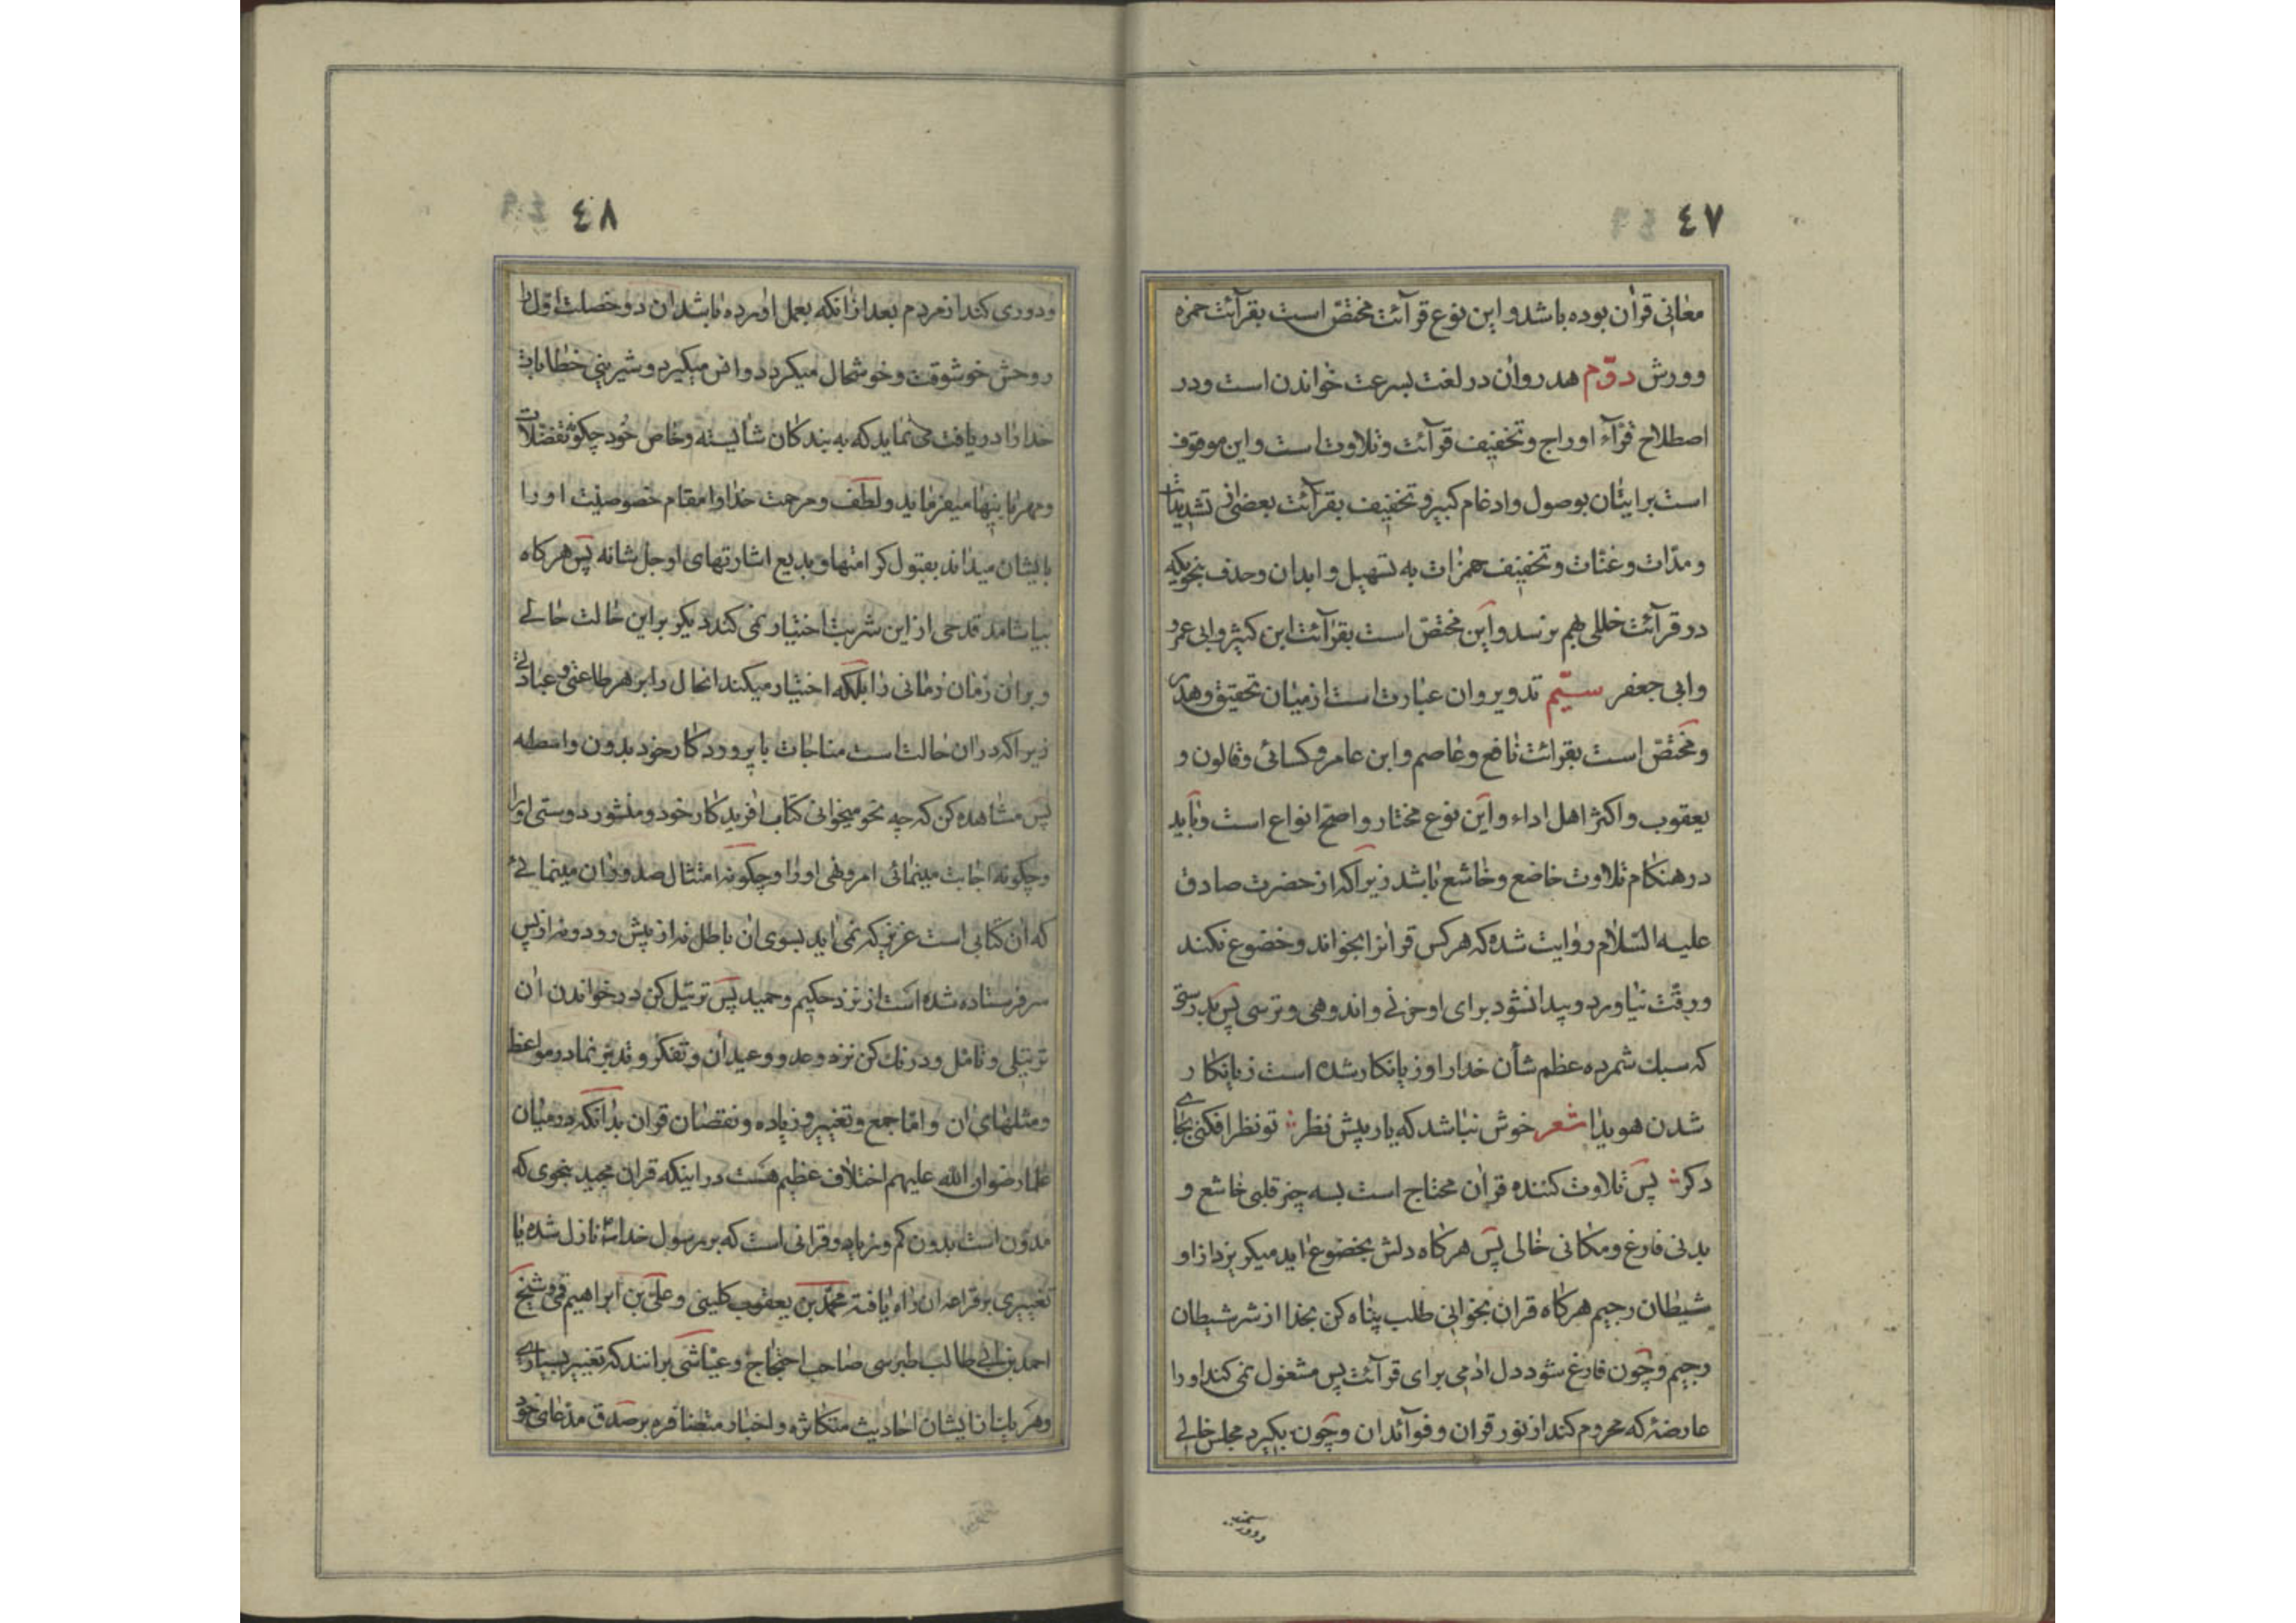 ٤٧
معانی قرآن بوده باشد و این نوع قرآئت مختصّ است بقرآئت حمزه
و ورش دوّم هدر و ان در لغت بسرعت خواندن است و در
اصطلاح قرّآء اوراج و تخفیف قرآئت و تلاوت است و این موقوف
است برایشان بوصول و ادغام کبیر و تخفیف بقرآئت بعضی تشدیدات
و مدّات و غنّات و تخفیف همزات به تسهیل و ابدان و حذف بنحویکه
در قرآئت خللی بهم نرسد و این مختصّ است بقرآئت ابن کثیر و ابی عمرو
و ابی جعفر سیّم تدویر و ان عبارت است از میان تحقیق و هدر
و مختصّ است بقرائت نافع و عاصم و ابن عامر و کسائی و قالون و
یعقوب و اکثر اهل اداء و این نوع مختار و اصحّ انواع است و باید
در هنکام تلاوت خاضع و خاشع باشد زیرا که از حضرت صادق
علیه السّلام روایت شده که هر کس قرانرا بخواند و خضوع نکند
و رقّت نیاورد و پیدا نشود برای او حزنی و اندوهی و ترسی پس بدرستی
که سبك شمرده عظم شأن خدا را و زیانکار شده است زیانکار
شدن هویدا شعر خوش نباشد که یار پیش نظر تو نظر افکنی بجای
دکر پس تلاوت کننده قران محتاج است بسه چیز قلبی خاشع و
بدنی فارغ و مکانی خالی پس هر کاه دلش بخضوع اید میکریزد از او
شیطان رجیم هر کاه قران بخوانی طلب پناه کن بخدا از شر شیطان
رجیم و چون فارغ شود دل ادمی برای قرآئت پس مشغول نمی کند او را
عارضهٔ که محروم کند از نور قران و فوآئد ان و چون بکیرد مجلس خالی
٤٨
و دوری کند از مردم بعد از انکه بعمل اورده باشد ان دو خصلت اول را
روحش خوشوقت و خوشحال میکردد و انس میکیرد و شیرینی خطابات
خدا را در یافت می نماید که به بندکان شایسته و خاص خود چکونه تفضّلات
و مهربانیها میفرماید و لطف و مرحمت خدا و مقام خصوصیت او را
بایشان میداند بقبول کرامتها و بدیع اشارتهای او جل شانه پس هر کاه
بیاشامد قدحی از این شربت اختیار نمی کند دیکر بر این حالت حالی
و بر ان زمان زمانی را بلکه اختیار میکند انحال را بر هر طاعتی و عبادتی
زیرا که در ان حالت است مناجات با پروردکار خود بدون واسطه
پس مشاهده کن که چه نحو میخوانی کتاب افریدکار خود و منشور دوستی او را
و چکونه اجابت مینمائی امر و نهی او را و چکونه امتثال حدود ان مینمائی
که ان کتابی است عزیز که نمی اید بسوی ان باطل نه از پیش رو و نه از پس
سر فرستاده شده است از نزد حکیم و حمید پس ترتیل کن در خواندن ان
ترتیلی و تامّل و درنك کن نزد وعد و وعید ان و تفکر و تدبر نما در مواعظ
و مثلهای ان و امّا جمع و تغییر و زیاده و نقصان قران بدانکه در میان
علما رضوان الله علیهم اختلاف عظیم هست در اینکه قران مجید بنحوی که
مدوّن است بدون کم و زیاد و قرانی است که بر رسول خدا نازل شده یا
تغییری بر قراءه ان راه یافته محمّد بن یعقوب کلینی و علی بن ابراهیم قمی و شیخ
احمد بن ابی طالب طبرسی صاحب احتجاج و عیّاشی برانند که تغییر بسیاری
و هر یك از ایشان احادیث متکاثره و اخبار متضافره بر صدق مدعای خود